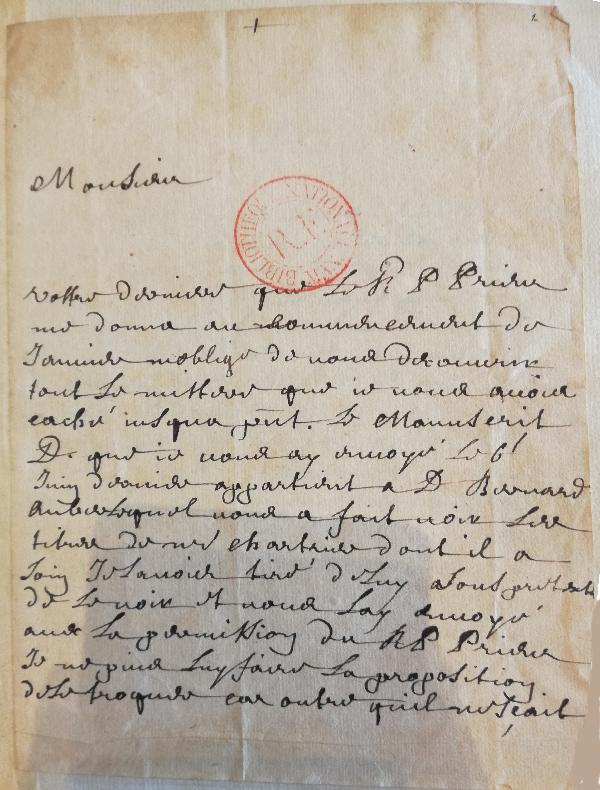 2
Monsieur
BIBLIOTHEQUE NATIONALE MSS
R.F.
vostre derniere que Le R P Prieur
me donna au commencement de
Januier moblige de vous decouurir
tout Le mistere que ie vous auois
caché iusqua pnt. Le Manuscrit
D. que ie vous ay enuoyé Le 6
Juin dernier appartient a D Bernard
Aubert lequel vous a fait voir Les
titres de nre chartreuse dont il a
soin Je Lauois tiré de Luy a sous pretexte
de Le voir et vous Lay enuoyé
auec La permission du RP Prieur
Je ne puis Luy faire La proposition
de Le troquer car outre quil ne sçait